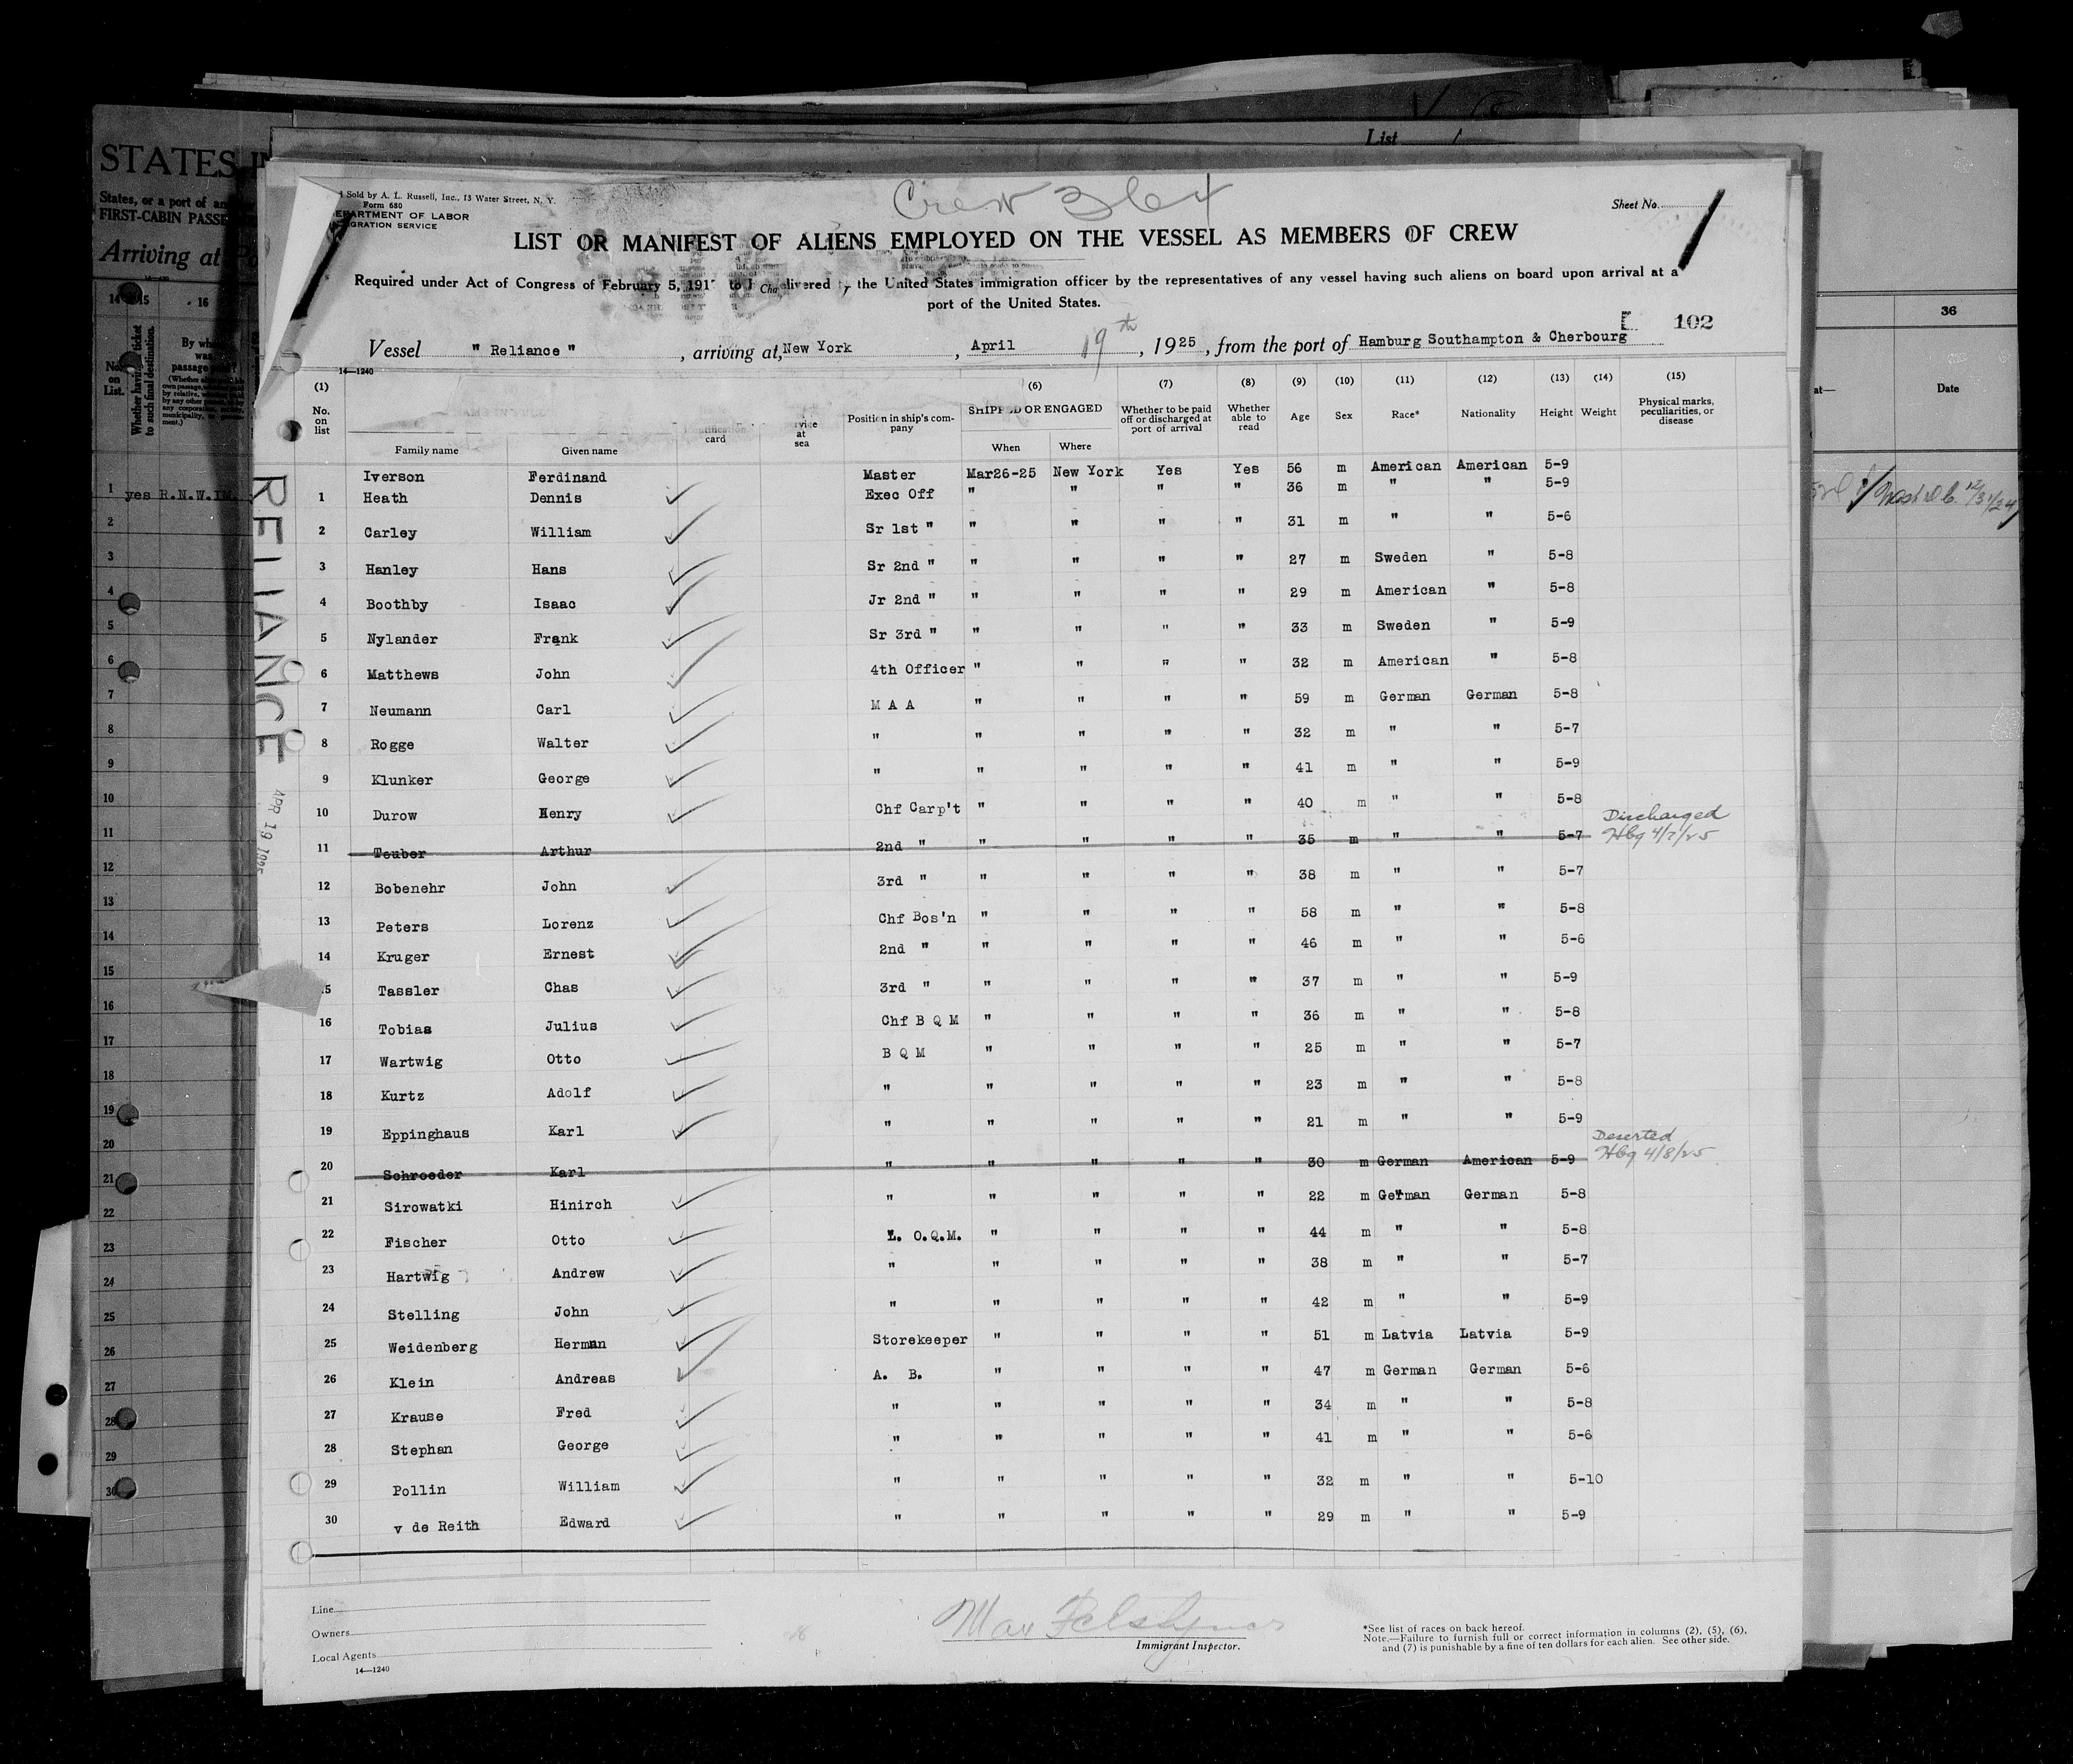 STATES
States, or a port of an
FIRST-CABIN PASSE
Arriving at Po
List
Sold by A. L. Russell, Inc., 13 Water Street, N. Y.
Form 680
DEPARTMENT OF LABOR
IGRATION SERVICE
Crew 364
Sheet No. 1
LIST OR MANIFEST OF ALIENS EMPLOYED ON THE VESSEL AS MEMBERS OF CREW
Required under Act of Congress of February 5, 191 to livered the United States immigration officer by the representatives of any vessel having such aliens on board upon arrival at a
port of the United States.
E 102
Vessel " Reliance " , arriving at, New York , April 19th , 1925 , from the port of Hamburg Southampton & Cherbourg
14—1240
(1) (6) (7) (8) (9) (10) (11) (12) (13) (14) (15)
No. on list Family name Given name card at sea Position in ship's company SHIPPED OR ENGAGED When Where Whether to be paid off or discharged at port of arrival Whether able to read Age Sex Race* Nationality Height Weight Physical marks, peculiarities, or disease
Iverson Ferdinand Master Mar26-25 New York Yes Yes 56 m American American 5-9
1 Heath Dennis Exec Off " " " " 36 m " " 5-9
2 Carley William Sr 1st " " " " " 31 m " " 5-6
3 Hanley Hans Sr 2nd " " " " " 27 m Sweden " 5-8
4 Boothby Isaac Jr 2nd " " " " " 29 m American " 5-8
5 Nylander Frank Sr 3rd " " " " " 33 m Sweden " 5-9
6 Matthews John 4th Officer " " " " 32 m American " 5-8
7 Neumann Carl M A A " " " " 59 m German German 5-8
8 Rogge Walter " " " " " 32 m " " 5-7
9 Klunker George " " " " " 41 m " " 5-9
10 Durow Henry Chf Carp't " " " " 40 m " " 5-8
11 Teuber Arthur 2nd " " " " " 35 m " " 5-7 Discharged Hbg 4/7/25
12 Bobenehr John 3rd " " " " " 38 m " " 5-7
13 Peters Lorenz Chf Bos'n " " " " 58 m " " 5-8
14 Kruger Ernest 2nd " " " " " 46 m " " 5-6
15 Tassler Chas 3rd " " " " " 37 m " " 5-9
16 Tobias Julius Chf B Q M " " " " 36 m " " 5-8
17 Wartwig Otto B Q M " " " " 25 m " " 5-7
18 Kurtz Adolf " " " " " 23 m " " 5-8
19 Eppinghaus Karl " " " " " 21 m " " 5-9
20 Schroeder Karl " " " " " 30 m German American 5-9 Deserted Hbg 4/8/25
21 Sirowatki Hinirch " " " " " 22 m German German 5-8
22 Fischer Otto L. O.Q.M. " " " " 44 m " " 5-8
23 Hartwig Andrew " " " " " 38 m " " 5-7
24 Stelling John " " " " " 42 m " " 5-9
25 Weidenberg Herman Storekeeper " " " " 51 m Latvia Latvia 5-9
26 Klein Andreas A. B. " " " " 47 m German German 5-6
27 Krause Fred " " " " " 34 m " " 5-8
28 Stephan George " " " " " 41 m " " 5-6
29 Pollin William " " " " " 32 m " " 5-10
30 v de Reith Edward " " " " " 29 m " " 5-9
RELIANCE
APR 19 1925
Line
Owners
Local Agents
14—1240
Max
Immigrant Inspector.
*See list of races on back hereof.
Note.—Failure to furnish full or correct information in columns (2), (5), (6),
and (7) is punishable by a fine of ten dollars for each alien. See other side.
14 15 16
No. on List.
Whether having ticket to such final destination.
1 yes R.N.W.
2
3
4
5
6
7
8
9
10
11
12
13
14
15
16
17
18
19
20
21
22
23
24
25
26
27
28
29
30
36
at— Date
12/31/24